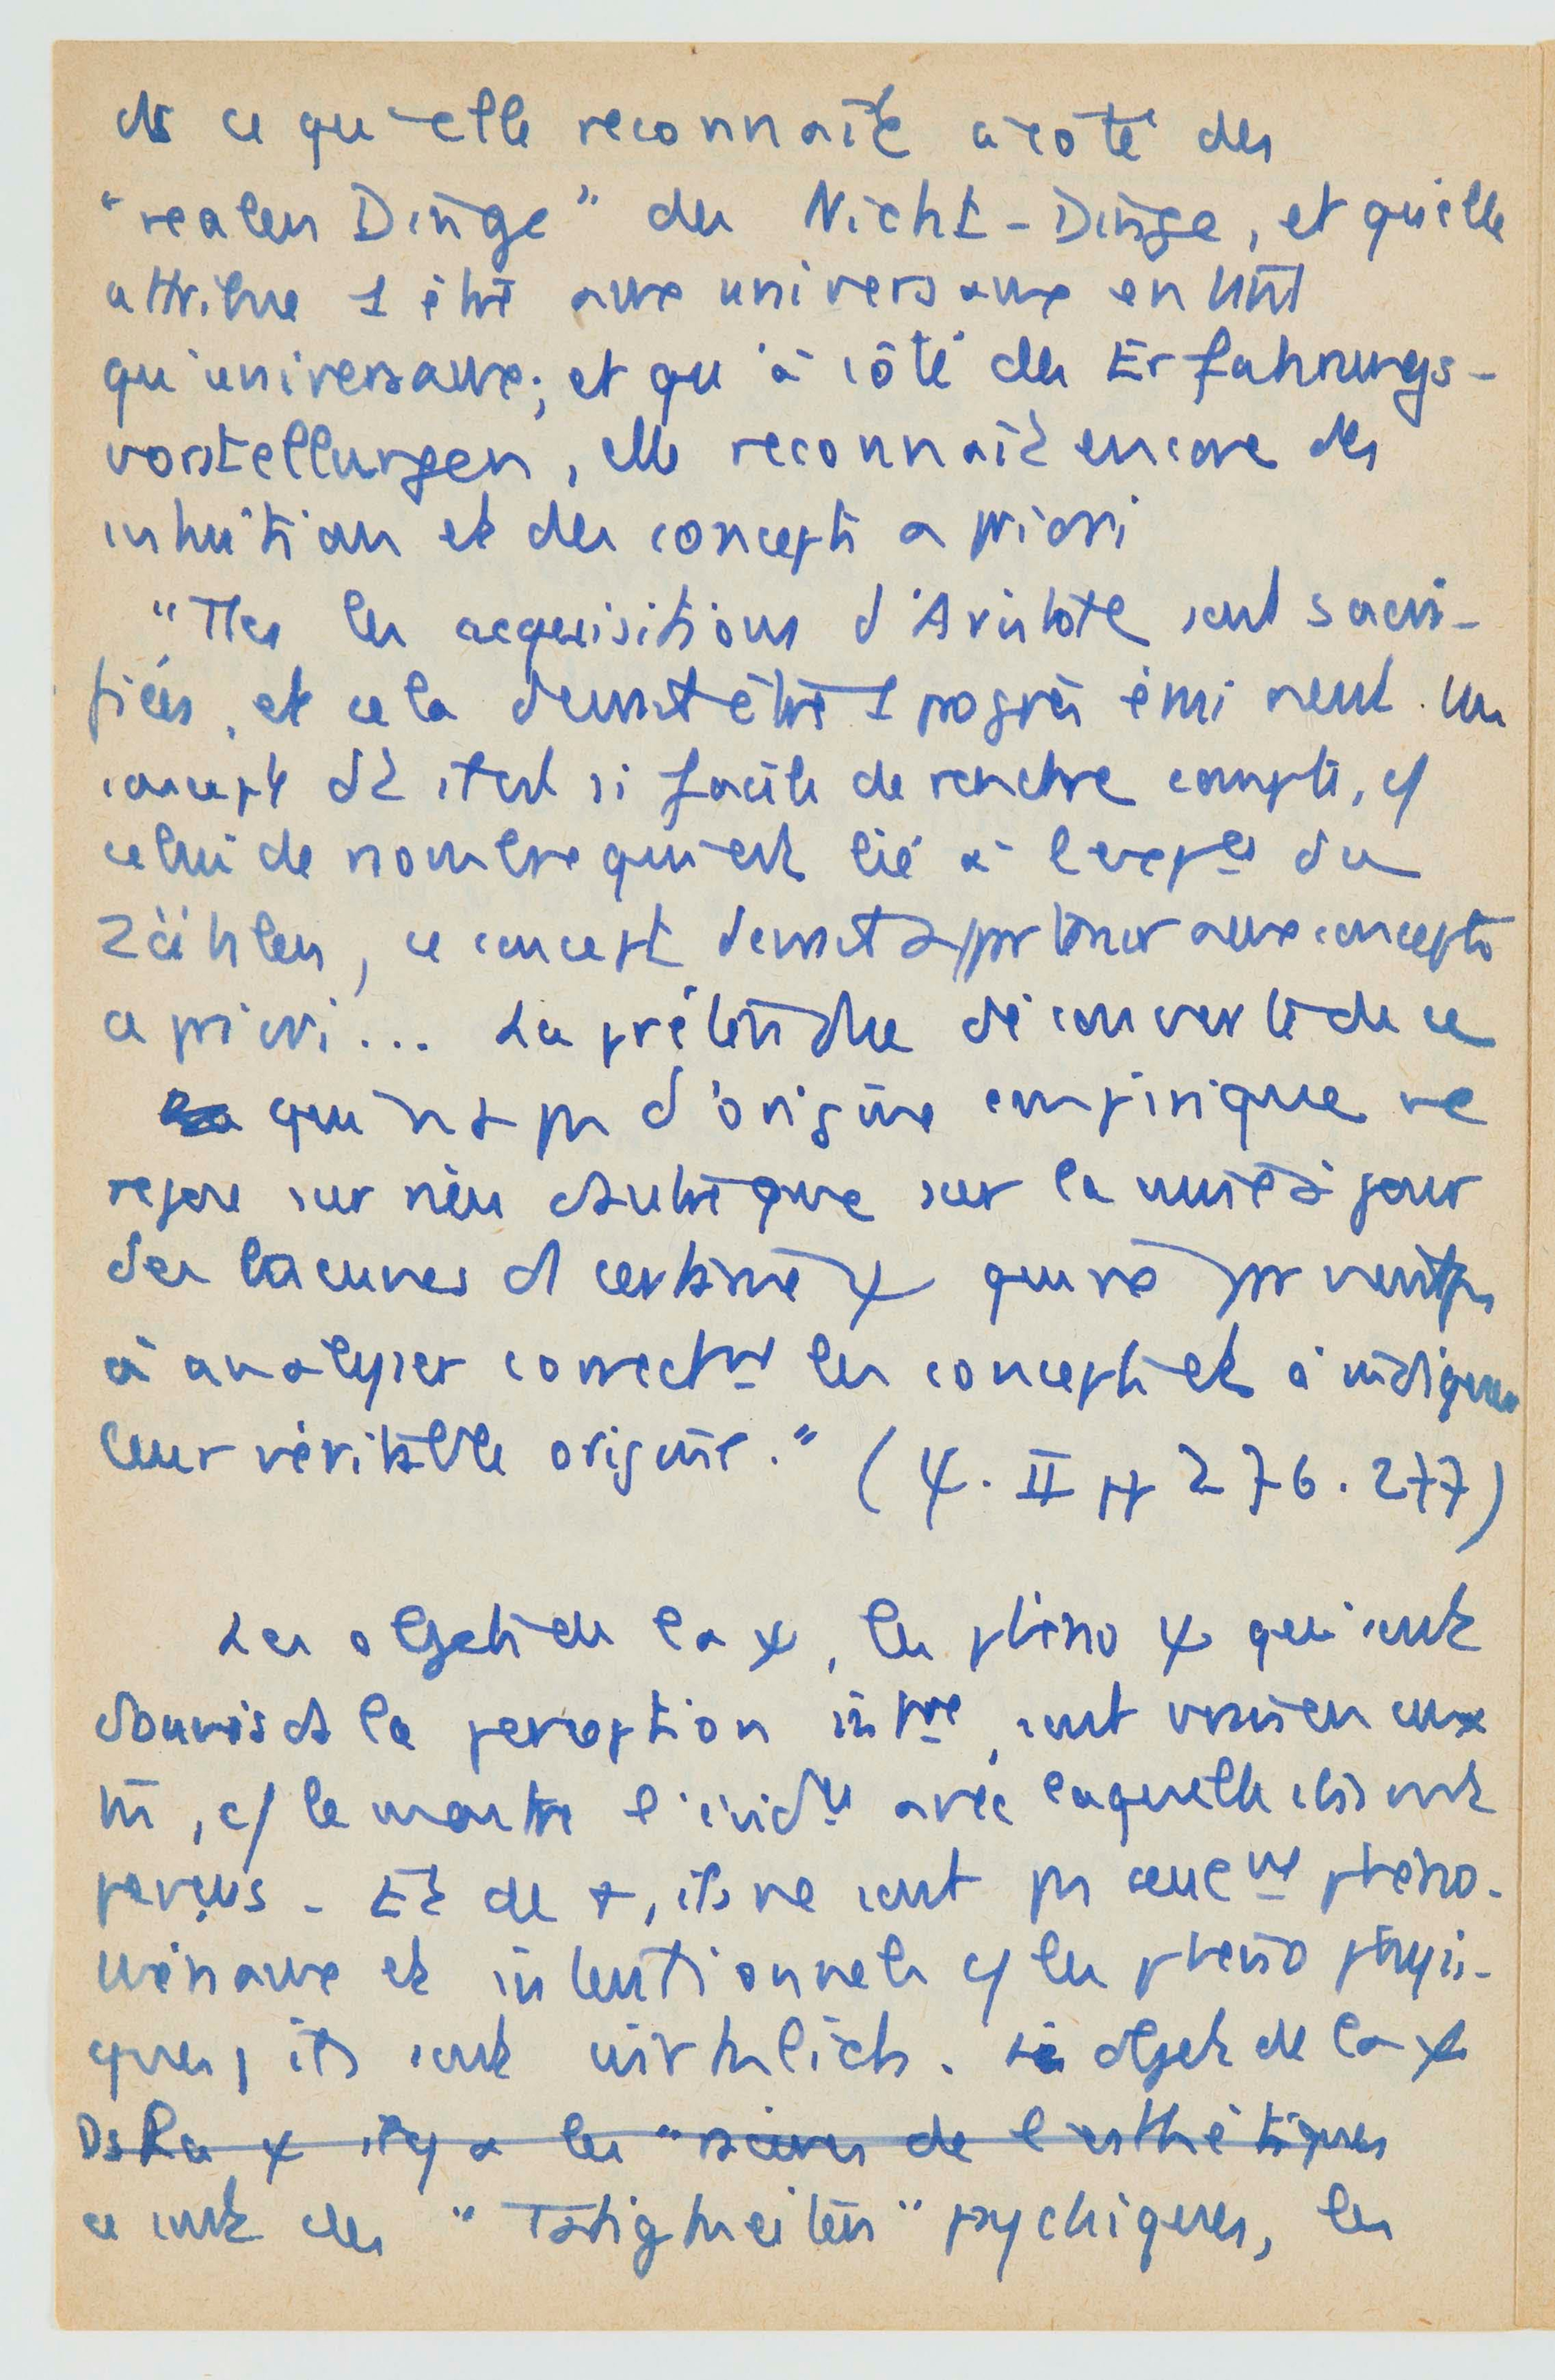 ds ce qu'elle reconnaît à côté des
"realen Dinge" des Nicht-Dinge, et qu'elle
attribue 1 être aux universaux en tant
qu'universaux; et qu'à côté des Erfahrungs-
vorstellungen, elle reconnaît encore des
intuitions et des concepts a priori
"Ttes les acquisitions d'Aristote sont sacri-
fiées, et cela devrait être 1 progrès éminent. Un
concept dt il est si facile de rendre compte, c/
celui de nombre qui est lié à l'exp^ce du
Zählen, ce concept devrait appartenir aux concepts
a priori... La prétendue découverte de ce
qui n'a pas d'origine empirique ne
repose sur rien d'autre que sur la mise à jour
des lacunes d certaine ψ qui ne parvient pas
à analyser correct^mt les concepts et à indiquer
leur véritable origine." (ψ. II pp 276.277)
Les objets de la ψ, les phéno ψ qui sont
donnés ds la perception int^ne, sont vrais en eux
m̄, c/ le montre l'évid^ce avec laquelle ils sont
perçus - Et de +, ils ne sont pas seul^mt phéno-
ménaux et intentionnels c/ les phéno physi-
ques, ils sont wirklich. Les objets de la ψ
Ds la ψ il y a les " de l'esthétiques
ce sont des "Tätigkeiten" psychiques, les